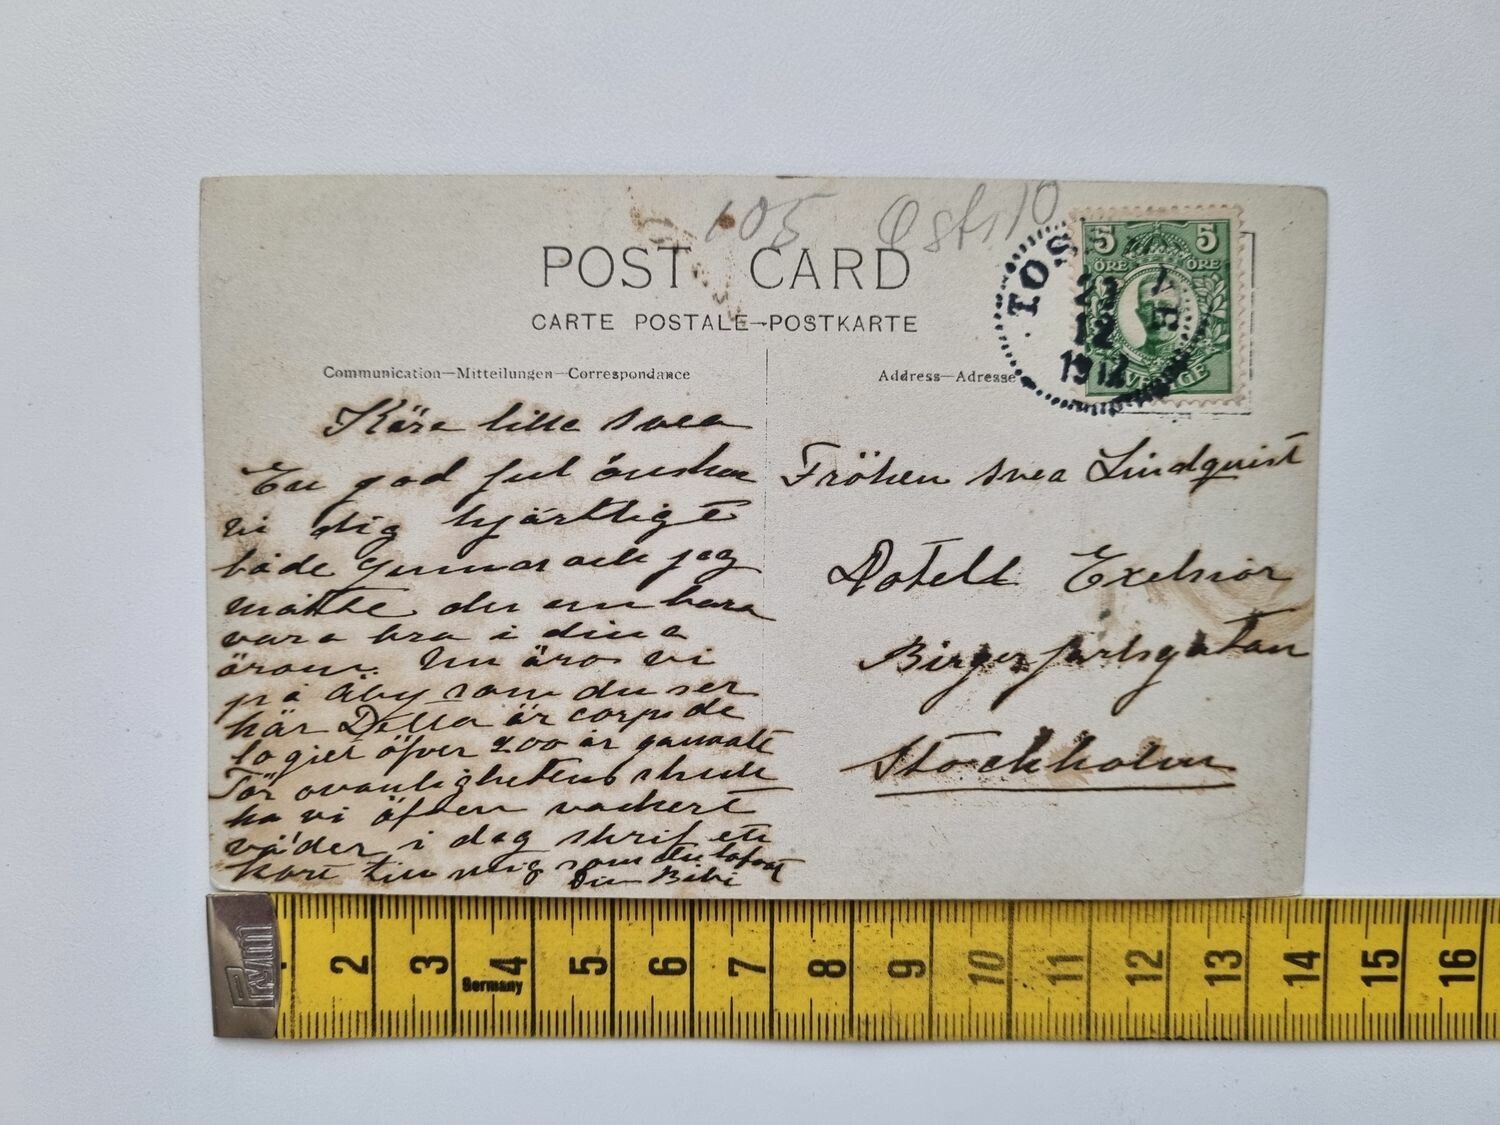 105 Östs 10
POST CARD
CARTE POSTALE—POSTKARTE
Communication—Mitteilungen—Correspondance
Address—Adresse
5 5
ÖRE ÖRE
SVERIGE
23
12
1912
Käre lille Svea
En god jul önskar
vi dig hjärtligt
både Gunnar ock jag
måtte du nu bara
vara bra i dina
öron. Nu äro vi
på Åby som du ser
här Detta är corps de
logiet öfver 200 år gammalt
För ovanlighetens skull
ha vi äfven vackert
väder i dag skrif ett
kort till mig som du lofvat
Din Bibi
Fröken Svea Lindquist
Hotell Exelsior
Birger jarlsgatan
Stockholm
Prym
Germany
2 3 4 5 6 7 8 9 10 11 12 13 14 15 16